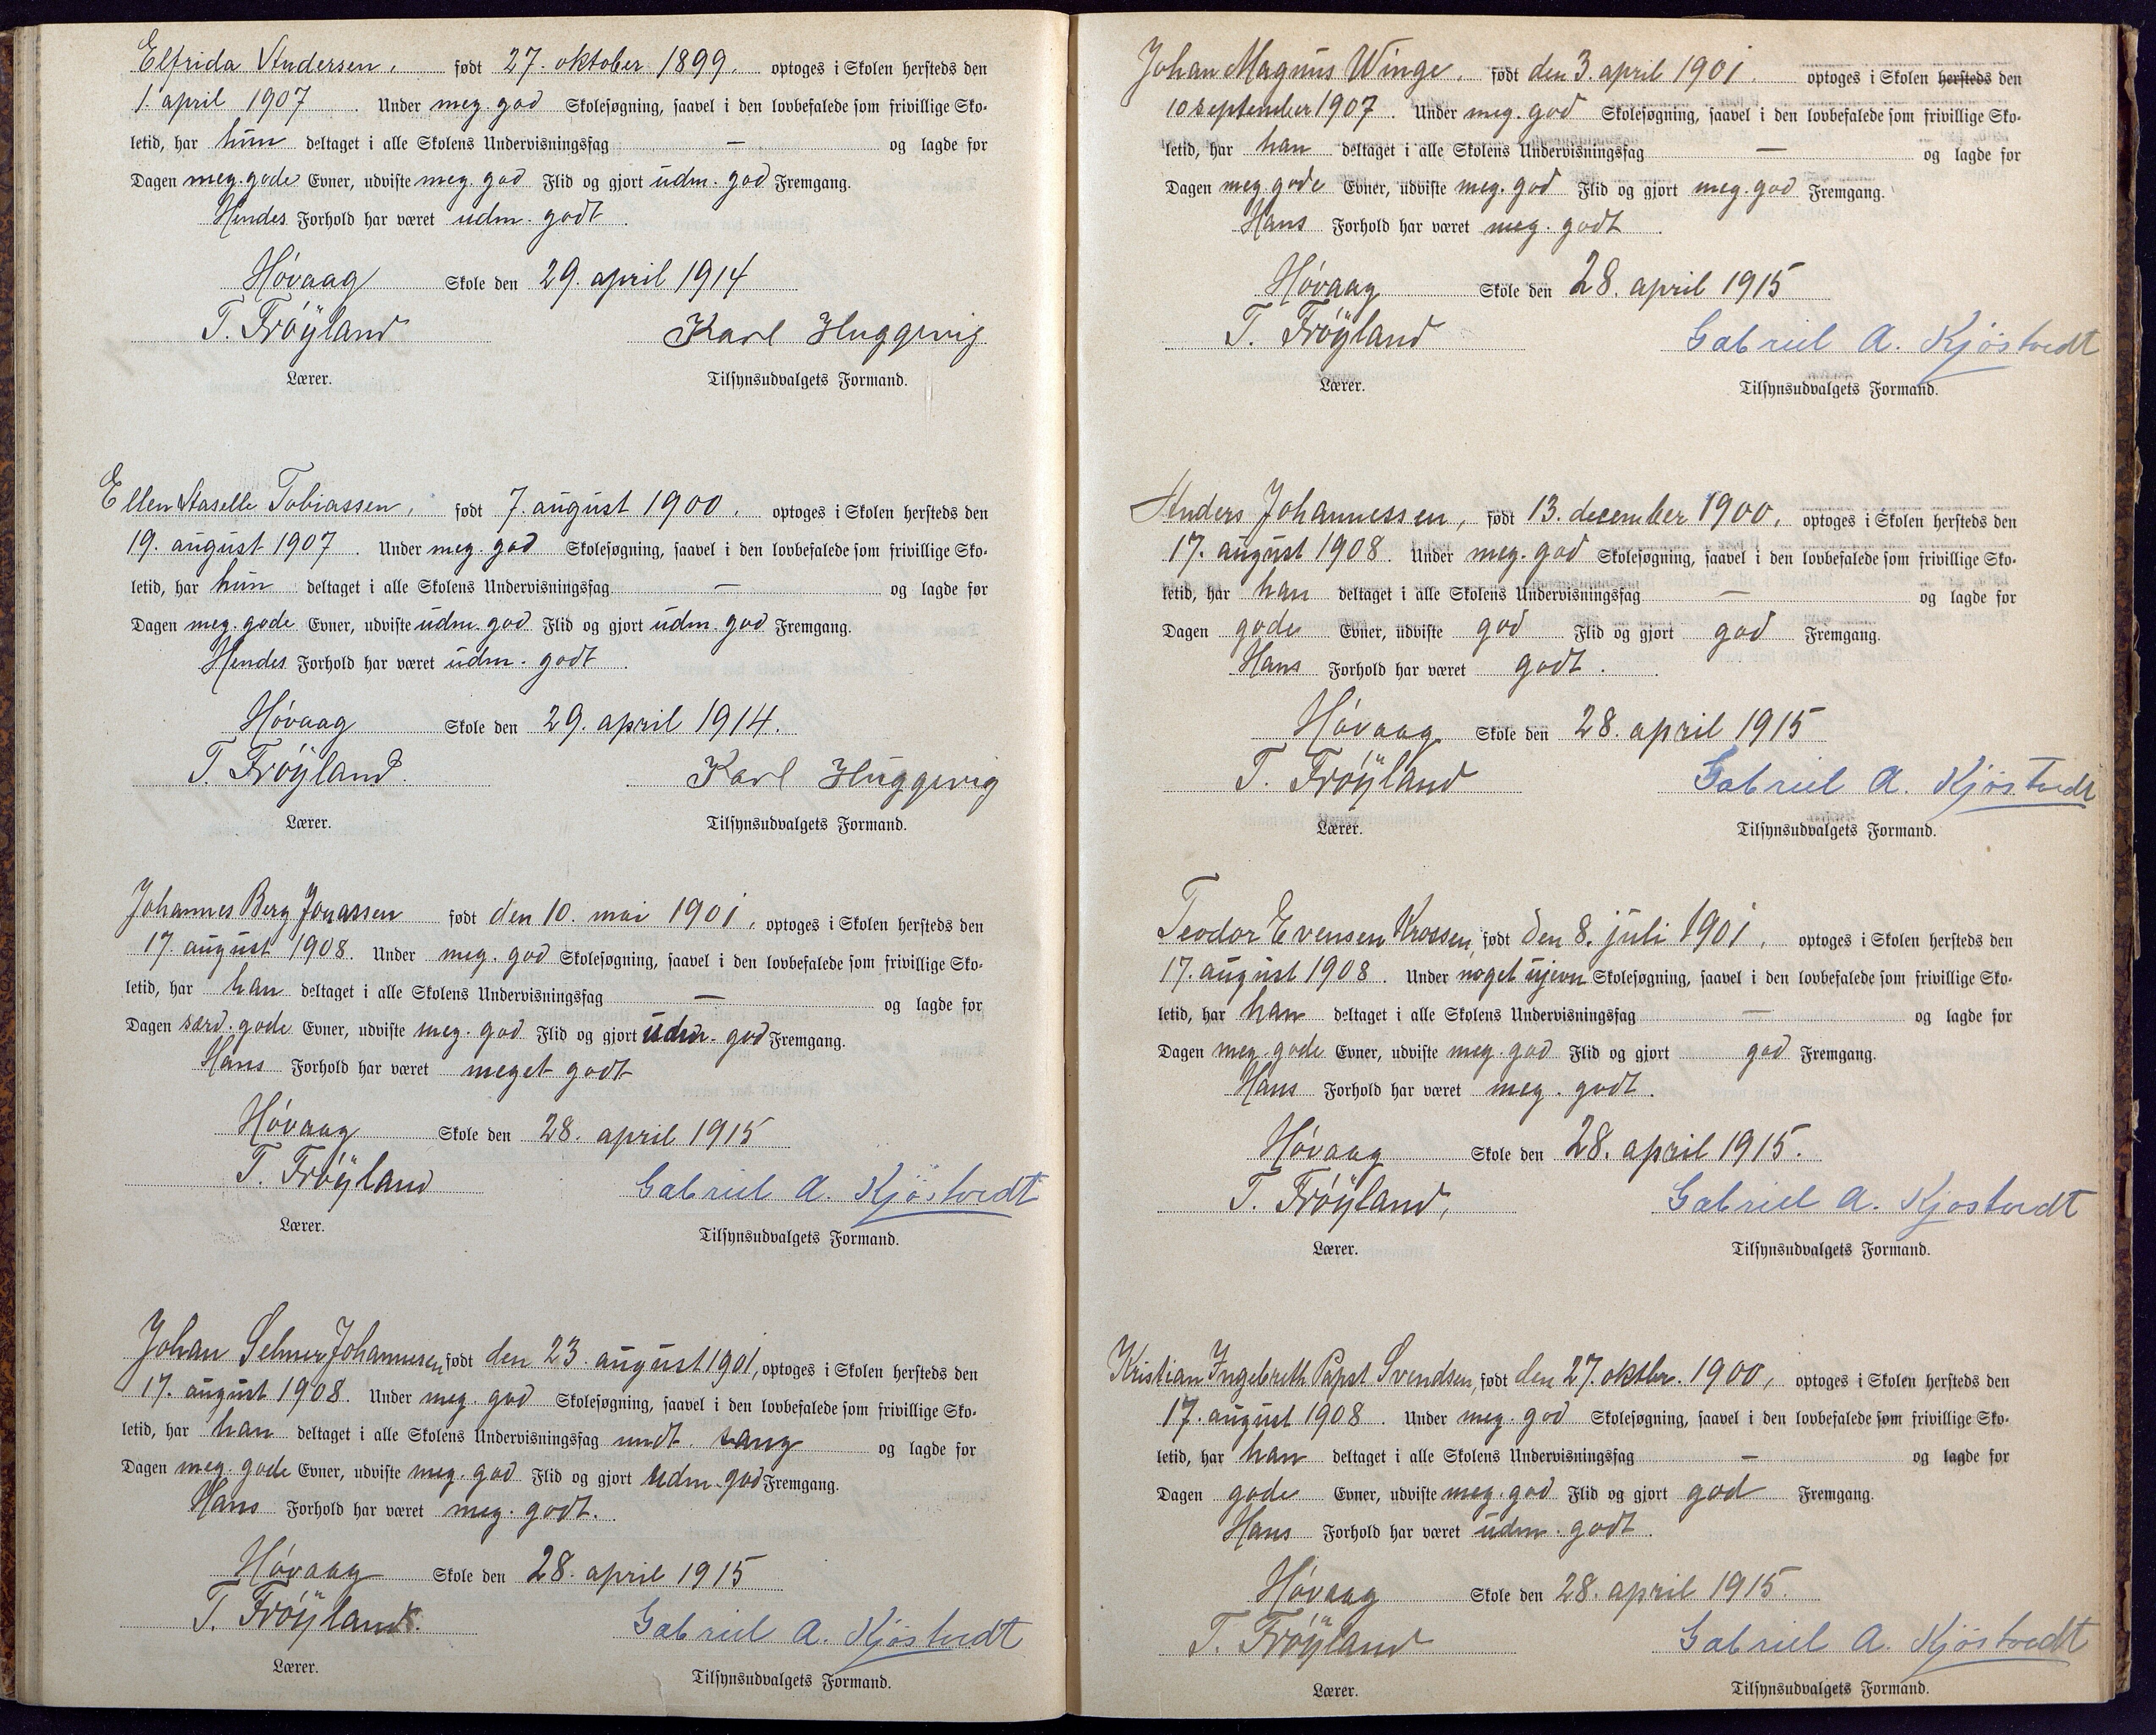 Elfrida Andersen, født 27. oktober 1899. optoges i Skolen hersteds den
1. april 1907. Under meg. god Skolesøgning, saavel i den lovbefalede som frivillige Sko-
letid, har hun deltaget i alle Skolens Undervisningsfag — og lagde for
Dagen meg. gode Evner, udviste meg. god Flid og gjort udm. god Fremgang.
Hendes Forhold har været udm. godt.
Høvaag Skole den 29. april 1914
T. Frøÿland Karl Huggevig
Lærer. Tilsynsudvalgets Formand.
Ellen Aaselle Tobiassen, født 7. august 1900. optoges i Skolen hersteds den
19. august 1907. Under meg. god Skolesøgning, saavel i den lovbefalede som frivillige Sko-
letid, har hun deltaget i alle Skolens Undervisningsfag — og lagde for
Dagen meg. gode Evner, udviste udm. god Flid og gjort udm. god Fremgang.
Hendes Forhold har været udm. godt.
Høvaag Skole den 29. april 1914.
T. Frøÿland. Karl Huggevig
Lærer. Tilsynsudvalgets Formand.
Johannes Berg Jonassen født den 10. mai 1901, optoges i Skolen hersteds den
17. august 1908. Under meg. god Skolesøgning, saavel i den lovbefalede som frivillige Sko-
letid, har han deltaget i alle Skolens Undervisningsfag — og lagde for
Dagen særd. gode Evner, udviste meg. god Flid og gjort udm. god Fremgang.
Hans Forhold har været meget godt
Høvaag Skole den 28. april 1915
T. Frøÿland Gabriel A. Kjöstvedt
Lærer. Tilsynsudvalgets Formand.
Johan Selmer Johannesen født den 23. august 1901, optoges i Skolen hersteds den
17. august 1908. Under meg. god Skolesøgning, saavel i den lovbefalede som frivillige Sko-
letid, har han deltaget i alle Skolens Undervisningsfag undt. sang og lagde for
Dagen meg. gode Evner, udviste meg. god Flid og gjort udm. god Fremgang.
Hans Forhold har været meg. godt.
Høvaag Skole den 28. april 1915
T. Frøÿland. Gabriel A. Kjöstvedt
Lærer. Tilsynsudvalgets Formand.
Johan Magnus Winge. født den 3. april 1901. optoges i Skolen hersteds den
10 september 1907. Under meg. god Skolesøgning, saavel i den lovbefalede som frivillige Sko-
letid, har han deltaget i alle Skolens Undervisningsfag — og lagde for
Dagen meg gode Evner, udviste meg. god Flid og gjort meg. god Fremgang.
Hans Forhold har været meg. godt.
Høvaag Skole den 28. april 1915
T. Frøÿland Gabriel A. Kjöstvedt
Lærer. Tilsynsudvalgets Formand.
Anders Johannessen, født 13. december 1900, optoges i Skolen hersteds den
17. august 1908. Under meg. god Skolesøgning, saavel i den lovbefalede som frivillige Sko-
letid, har han deltaget i alle Skolens Undervisningsfag — og lagde for
Dagen gode Evner, udviste god Flid og gjort god Fremgang.
Hans Forhold har været godt.
Høvaag Skole den 28. april 1915
T. Frøÿland Gabriel A. Kjöstvedt
Lærer. Tilsynsudvalgets Formand.
Teodor Evensen Krossen, født den 8. juli 1901, optoges i Skolen hersteds den
17. august 1908. Under noget ujevn Skolesøgning, saavel i den lovbefalede som frivillige Sko-
letid, har han deltaget i alle Skolens Undervisningsfag — og lagde for
Dagen meg. gode Evner, udviste meg. god Flid og gjort god Fremgang.
Hans Forhold har været meg. godt.
Høvaag Skole den 28. april 1915.
T. Frøÿland, Gabriel A. Kjöstvedt
Lærer. Tilsynsudvalgets Formand.
Kristian Ingebreth Papst Svendsen, født den 27. oktbr. 1900, optoges i Skolen hersteds den
17. august 1908. Under meg. god Skolesøgning, saavel i den lovbefalede som frivillige Sko-
letid, har han deltaget i alle Skolens Undervisningsfag — og lagde for
Dagen gode Evner, udviste meg. god Flid og gjort god Fremgang.
Hans Forhold har været udm. godt.
Høvaag Skole den 28. april 1915.
T. Frøÿland Gabriel A. Kjöstvedt
Lærer. Tilsynsudvalgets Formand.